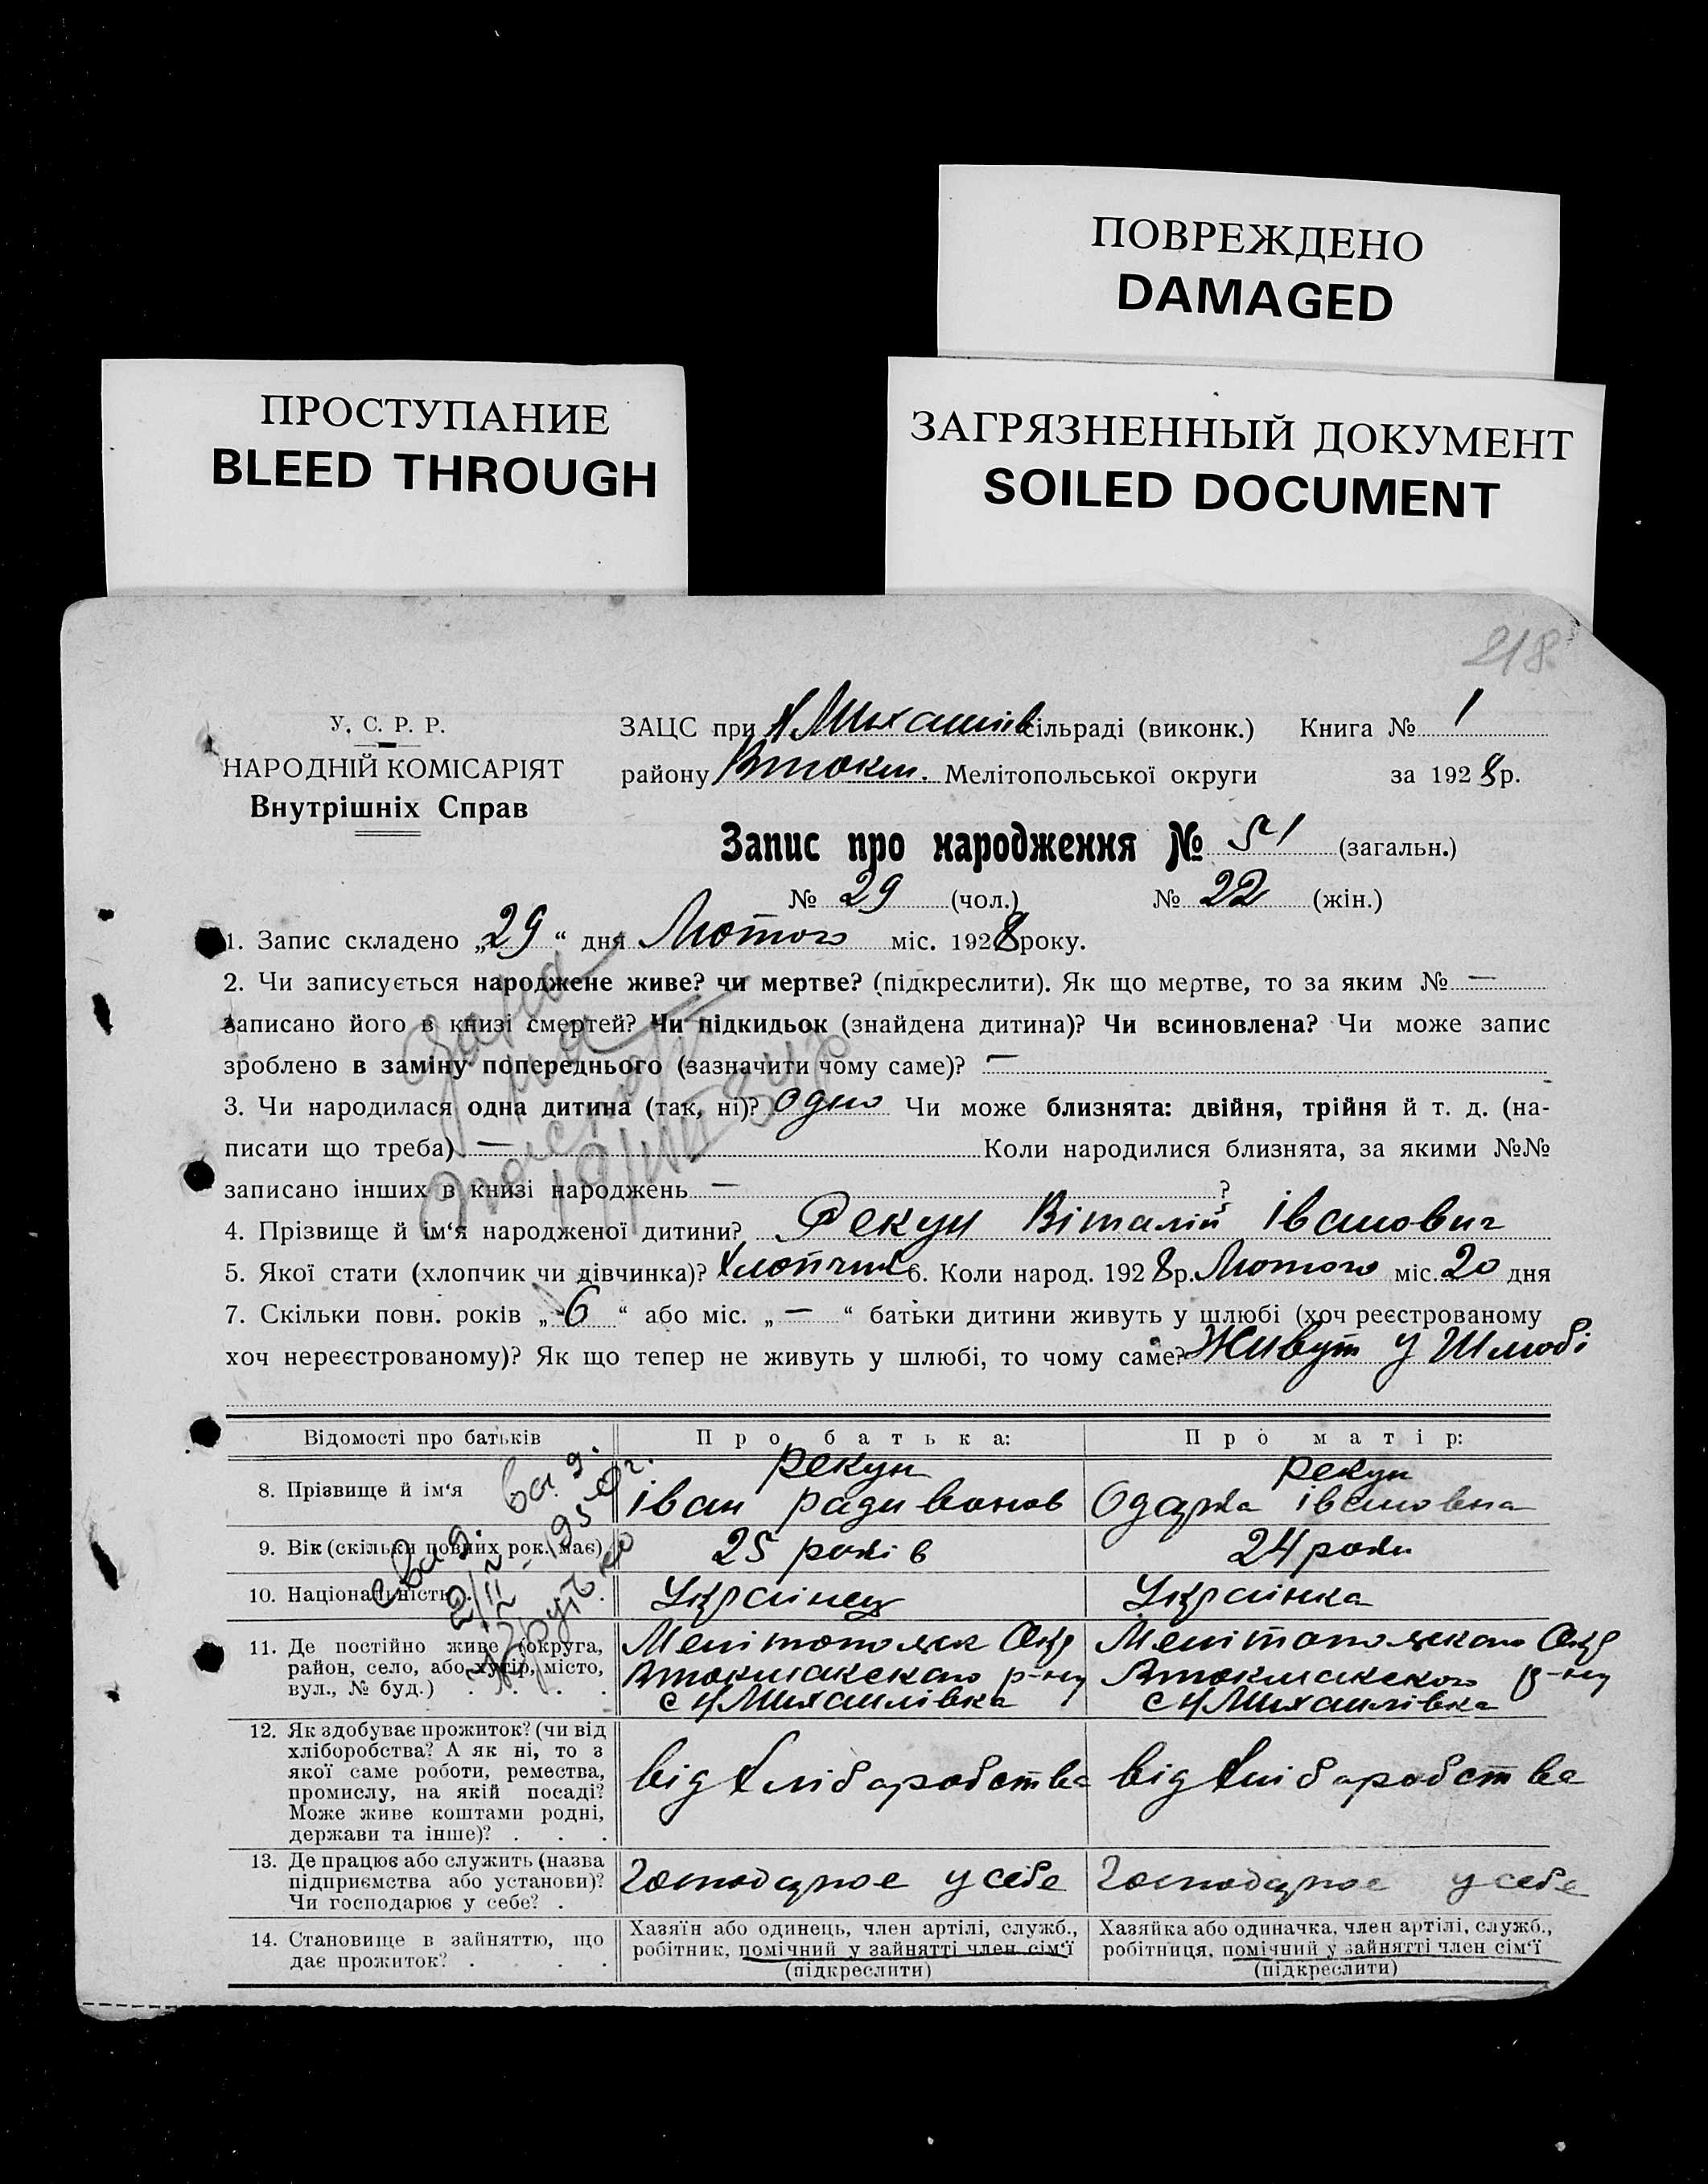 ПОВРЕЖДЕНО
DAMAGED
ПРОСТУПАНИЕ
BLEED THROUGH
ЗАГРЯЗНЕННЫЙ ДОКУМЕНТ
SOILED DOCUMENT
218
У. С. Р. Р.
НАРОДНІЙ КОМІСАРІЯТ
Внутрішніх Справ
ЗАЦС при Н Михайлів сільраді (виконк.) Книга № 1
району Втокм. Мелітопольської округи за 1928 р.
Запис про народження № 51 (загальн.)
№ 29 (чол.) № 22 (жін.)
1. Запис складено „29“ дня Лютого міс. 1928 року.
2. Чи записується народжене живе? чи мертве? (підкреслити). Як що мертве, то за яким № —
записано його в книзі смертей? Чи підкидьок (знайдена дитина)? Чи всиновлена? Чи може запис
зроблено в заміну попереднього (зазначити чому саме)? —
3. Чи народилася одна дитина (так, ні)? одно Чи може близнята: двійня, трійня й т. д. (на-
писати що треба) — Коли народилися близнята, за якими №№
записано інших в книзі народжень — ?
4. Прізвище й ім‘я народженої дитини? Рекун Віталій Іванович
5. Якої стати (хлопчик чи дівчинка)? Хлопчик 6. Коли народ. 1928 р. Лютого міс. 20 дня
7. Скільки повн. років „6“ або міс. „—“ батьки дитини живуть у шлюбі (хоч реєстрованому
хоч нереєстрованому)? Як що тепер не живуть у шлюбі, то чому саме? Живут у Шлюбі
Відомості про батьків Про батька: Про матір:
8. Прізвище й ім‘я Рекун Іван Радивонов Рекун Одарка Івановна
9. Вік (скільки повних рок. має) 25 років 24 роки
10. Національність Українец Українка
11. Де постійно живе (округа,
район, село, або хутір, місто,
вул., № буд.)
Мелітопольск Окр
Втокмакскаго р-ну
с Н Михайлівка
Мелітопольскаго Окр
Втокмакского р-ну
с Н Михайлівка
12. Як здобуває прожиток? (чи від
хліборобства? А як ні, то з
якої саме роботи, ремества,
промислу, на якій посаді?
Може живе коштами родні,
держави та інше)?
від хліборобства
від хліборобства
13. Де працює або служить (назва
підприємства або установи)?
Чи господарює у себе?
Господарює у себе
Господарює у себе
14. Становище в зайняттю, що
дає прожиток?
Хазяїн або одинець, член артілі, служб.,
робітник, помічний у зайнятті член сім‘ї
(підкреслити)
Хазяйка або одиначка, член артілі, служб.,
робітниця, помічний у зайнятті член сім‘ї
(підкреслити)